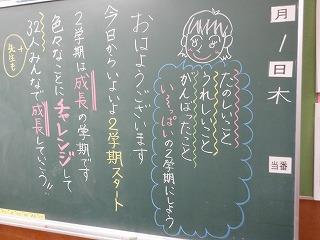 月
1
日
木
当番
たのしいこと
うれしいこと
がんばったこと
い〜っぱいの2学期にしよう
おはようございます
今日からいよいよ2学期スタート
2学期は成長の学期です
色々なことにチャレンジして
32人みんなで成長していこう!!
+先生も